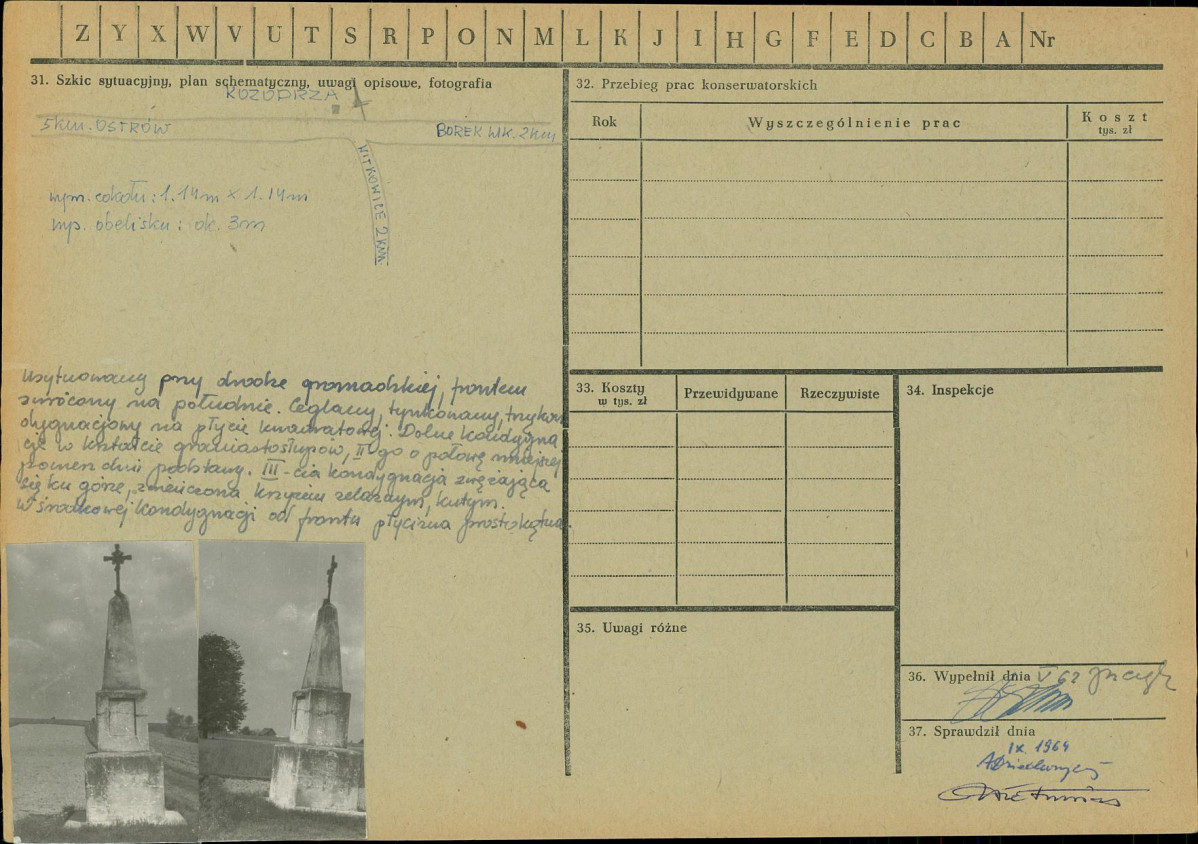 Z Y X W V U T S R P O N M L K J I H G F E D C B A Nr
31. Szkic sytuacyjny, plan schematyczny, uwagi opisowe, fotografia
KOZODRZA
5km. OSTRÓW
BOREK WK. 2km
WITKOWICE 2 KM.
wym. cokołu: 1.14m × 1.14m
wys. obelisku: ok. 3m
Usytuowany przy drodze gromadzkiej, frontem
zwrócony na południe. Ceglany, tynkowany, trzykon
dygnacjowy na płycie kwadratowej. Dolne kondygna
cje w kształcie graniastosłupów, II-go o połowę mniejszej
powierzchni podstawy. III-cia kondygnacja zwężająca
się ku górze, zwieńczona krzyżem żelaznym, kutym.
W środkowej kondygnacji od frontu płycizna prostokątna.
32. Przebieg prac konserwatorskich
Rok
Wyszczególnienie prac
Koszt
tys. zł
33. Koszty
w tys. zł
Przewidywane
Rzeczywiste
34. Inspekcje
35. Uwagi różne
36. Wypełnił dnia V 62
37. Sprawdził dnia
IX. 1964